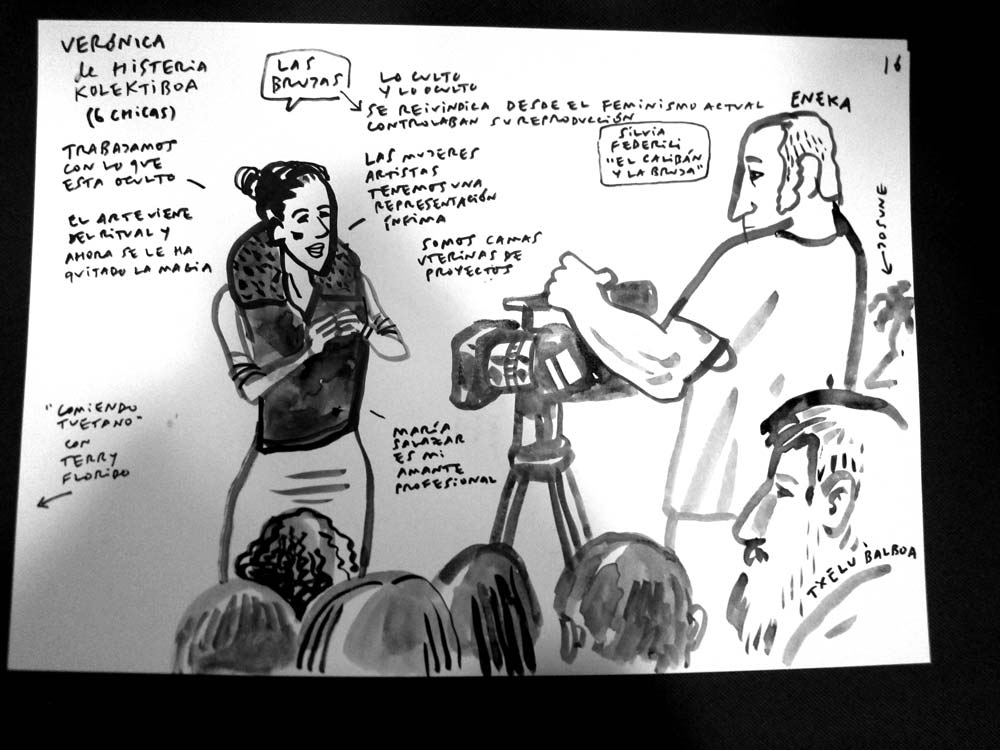 VERÓNICA
de HISTERIA
KOLEKTIBOA
(6 CHICAS)
TRABAJAMOS
CON LO QUE
ESTA OCULTO
EL ARTE VIENE
DEL RITUAL Y
AHORA SE LE HA
QUITADO LA MAGIA
LAS
BRUJAS
LO CULTO
Y LO OCULTO
SE REIVINDICA DESDE EL FEMINISMO ACTUAL
CONTROLABAN SU REPRODUCCIÓN
SILVIA
FEDERICI
"EL CALIBÁN
Y LA BRUJA"
LAS MUJERES
ARTISTAS
TENEMOS UNA
REPRESENTACIÓN
ÍNFIMA
SOMOS CAMAS
UTERINAS DE
PROYECTOS
16
ENEKA
JOSUNE
"COMIENDO
TUETANO"
CON
TERRY
FLORIDO
MARÍA
SALAZAR
ES MI
AMANTE
PROFESIONAL
TXELU BALBOA